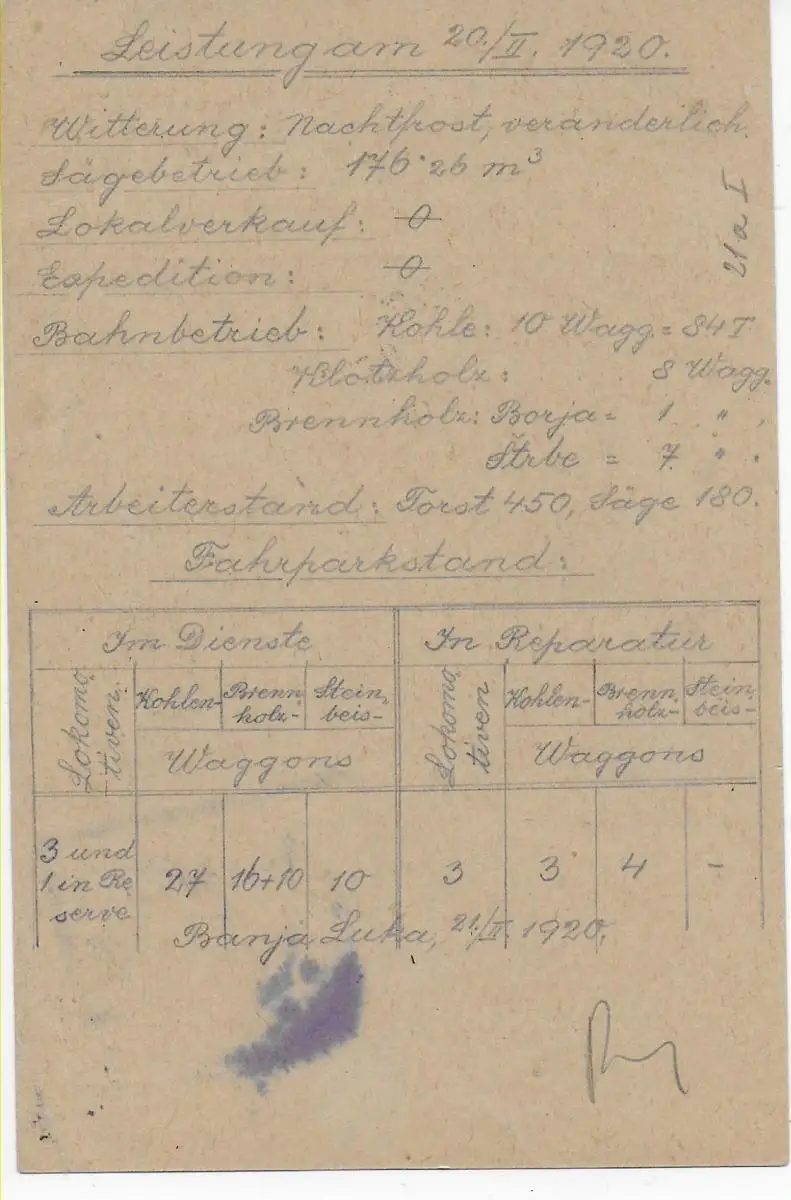 Leistung am 20./II. 1920.
Witterung: Nachtfrost, veränderlich.
Sägebetrieb: 176·26 m³
Lokalverkauf: 0
Expedition: 0
21a I
Bahnbetrieb: Kohle: 10 Wagg. = 84 T
Klötzholz: 8 Wagg.
Brennholz: Borja = 1 " .
Štrbe = 7 " .
Arbeiterstand: Forst 450, Säge 180.
Fahrparkstand:
Im Dienste In Reparatur
Lokomotiven. Kohlen- Brennholz- Steinbeis- Lokomotiven Kohlen- Brennholz- Steinbeis-
Waggons Waggons
3 und 1 in Reserve 27 16+10 10 3 3 4 -
Banja Luka, 21./II. 1920.